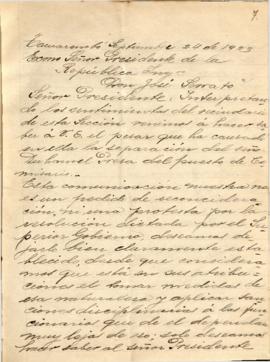 7.
Tacuarembó Septiembre 24 de 1923
Exmo Señor Presidente de la
República Ing.
Don José Serrato
Señor Presidente: Interpretan-
do los sentimientos del vecindario
de esta Sección venimos a hacer sa-
ber á V.E. el pesar que ha causado
en esta la separación del señor
Presa del puesto de Co-
misario.
Esta comunicacion nuestra no
es un pedido de reconsidera-
cion, ni una protesta por la
resolucion dictada por el Su-
perior Gobierno, deseamos de-
jarlo bien claramente esta-
blecido, desde que considera-
mos que está en sus atribu-
ciones el tomar medidas de
esa naturaleza y aplicar san-
ciones disciplinarias a los fun-
cionarios que de el dependan
muy lejos de eso; solo deseamos
hacer saber al señor Presidente